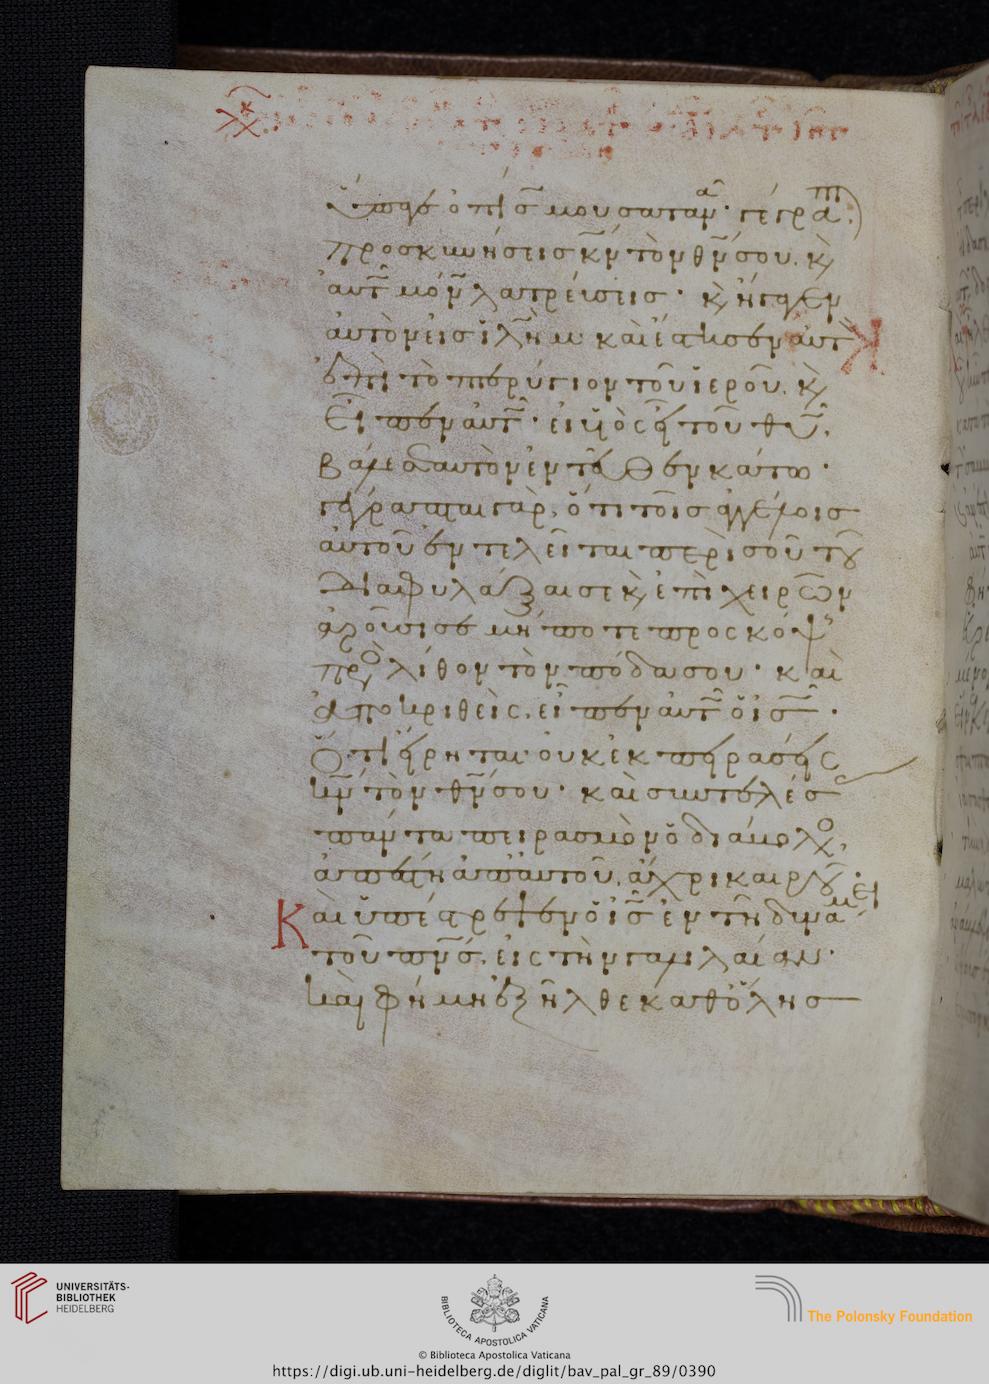 ὕπαγε ὀπίσω μου σατανᾶ· γέγραπται·
προσκυνήσεις κν̄ τὸν θν̄ σου. κ̀
αὐτῶ μόνω λατρεύσεις· κ̀ ἤγαγεν
αὐτὸν εἰς ἰλῆμ· καὶ ἔστησεν αὐτὸ
ἐπὶ τὸ πτερύγιον τοῦ ἱεροῦ. κ̀
εἶπεν αὐτῶ· εἰ υἱὸς εἶ τοῦ θῦ,
βάλε σεαυτὸν ἐντεῦθεν κάτω·
γέγραπται γὰρ, ὅτι τοῖς ἀγγέλοις
αὐτοῦ ἐντελεῖται περὶ σοῦ τοῦ
διαφυλάξαι σε κ̀ ἐπὶ χειρῶν
ἀροῦσι σε μήποτε προσκόψ
πρὸς λίθον τὸν πόδα σου· καὶ
ἀποκριθεὶς, εἶπεν αὐτῶ ὁ ισ̄·
ὅτι εἴρηται· οὐκ ἐκπειράσεις
κν̄ τὸν θν̄ σου· καὶ συντελέσ
πάντα πειρασμὸν ὁ διάβολο,
ἀπέστη ἀπ' αὐτοῦ, ἄχρι καιροῦ·
Καὶ ὑπέστρεψεν ὁ ισ̄ ἐν τῆ δυνάμει
τοῦ πν̄σ, εἰς τὴν γαλιλαίαν·
καὶ φήμη ἐξῆλθε καθ' ὅλης
UNIVERSITÄTS-
BIBLIOTHEK
HEIDELBERG
BIBLIOTECA APOSTOLICA VATICANA
The Polonsky Foundation
© Biblioteca Apostolica Vaticana
https://digi.ub.uni-heidelberg.de/diglit/bav_pal_gr_89/0390